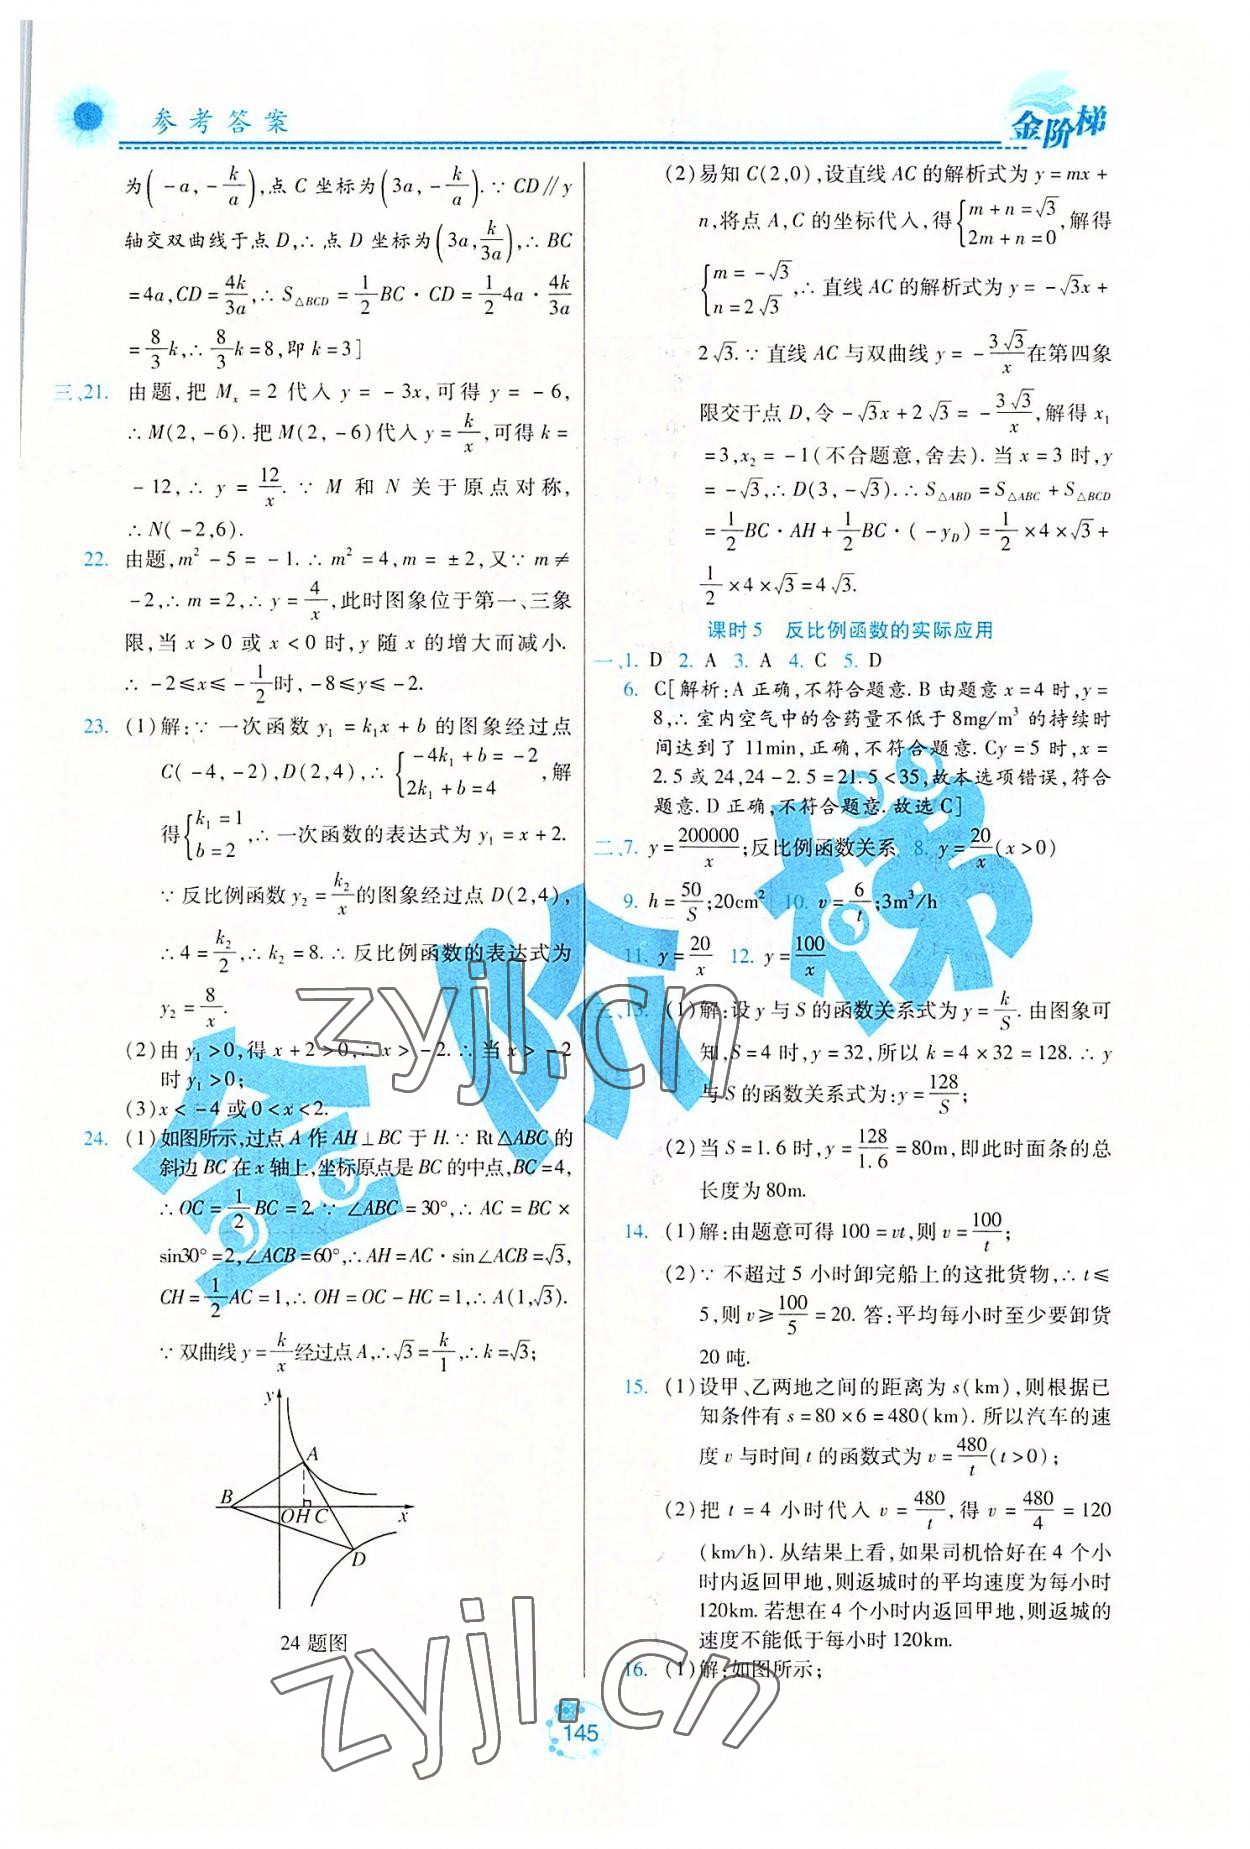 参考答案
金阶梯
为(-a,-k/a),点 C 坐标为(3a,-k/a).∵ CD∥y
轴交双曲线于点 D,∴ 点 D 坐标为(3a,k/3a),∴ BC
=4a,CD=4k/3a,∴ S△BCD=1/2BC·CD=1/2 4a·4k/3a
=8/3k,∴ 8/3k=8,即 k=3]
三、21. 由题,把 Mₓ=2 代入 y=-3x,可得 y=-6,
∴M(2,-6).把 M(2,-6)代入 y=k/x,可得 k=
-12,∴ y=12/x.∵ M 和 N 关于原点对称,
∴N(-2,6).
22. 由题,m²-5=-1.∴ m²=4,m=±2,又∵ m≠
-2,∴ m=2,∴ y=4/x,此时图象位于第一、三象
限,当 x>0 或 x<0 时,y 随 x 的增大而减小.
∴ -2≤x≤-1/2时,-8≤y≤-2.
23. (1)解:∵ 一次函数 y₁=k₁x+b 的图象经过点
C(-4,-2),D(2,4),∴ {-4k₁+b=-2 2k₁+b=4,解
得{k₁=1 b=2,∴ 一次函数的表达式为 y₁=x+2.
∵ 反比例函数 y₂=k₂/x的图象经过点 D(2,4),
∴4=k₂/2,∴ k₂=8.∴ 反比例函数的表达式为
y₂=8/x.
(2)由 y₁>0,得 x+2>0,∴ x>-2.∴ 当 x>-2
时 y₁>0;
(3)x<-4 或 0<x<2.
24. (1)如图所示,过点 A 作 AH⊥BC 于 H.∵ Rt△ABC 的
斜边 BC 在 x 轴上,坐标原点是 BC 的中点,BC=4,
∴ OC=1/2BC=2.∵ ∠ABC=30°,∴ AC=BC×
sin30°=2,∠ACB=60°,∴ AH=AC·sin∠ACB=√3,
CH=1/2AC=1,∴ OH=OC-HC=1,∴ A(1,√3).
∵ 双曲线 y=k/x经过点 A,∴√3=k/1,∴ k=√3;
y
A
B
OH C
x
D
24 题图
(2)易知 C(2,0),设直线 AC 的解析式为 y=mx+
n,将点 A,C 的坐标代入,得{m+n=√3 2m+n=0,解得
{m=-√3 n=2√3,∴ 直线 AC 的解析式为 y=-√3x+
2√3.∵ 直线 AC 与双曲线 y=-3√3/x在第四象
限交于点 D,令-√3x+2√3=-3√3/x,解得 x₁
=3,x₂=-1(不合题意,舍去).当 x=3 时,y
=-√3,∴ D(3,-√3).∴ S△ABD=S△ABC+S△BCD
=1/2BC·AH+1/2BC·(-y_D)=1/2×4×√3+
1/2×4×√3=4√3.
课时 5 反比例函数的实际应用
一、1. D 2. A 3. A 4. C 5. D
6. C[解析:A 正确,不符合题意.B 由题意 x=4 时,y=
8,∴ 室内空气中的含药量不低于 8mg/m³ 的持续时
间达到了 11min,正确,不符合题意.Cy=5 时,x=
2.5 或 24,24-2.5=21.5<35,故本选项错误,符合
题意.D 正确,不符合题意.故选 C]
二、7. y=200000/x;反比例函数关系 8. y=20/x(x>0)
9. h=50/S;20cm² 10. v=6/t;3m³/h
11. y=20/x 12. y=100/x
三、13. (1)解:设 y 与 S 的函数关系式为 y=k/S.由图象可
知,S=4 时,y=32,所以 k=4×32=128.∴ y
与 S 的函数关系式为:y=128/S;
(2)当 S=1.6 时,y=128/1.6=80m,即此时面条的总
长度为 80m.
14. (1)解:由题意可得 100=vt,则 v=100/t;
(2)∵ 不超过 5 小时卸完船上的这批货物,∴ t≤
5,则 v≥100/5=20.答:平均每小时至少要卸货
20 吨.
15. (1)设甲、乙两地之间的距离为 s(km),则根据已
知条件有 s=80×6=480(km).所以汽车的速
度 v 与时间 t 的函数式为 v=480/t(t>0);
(2)把 t=4 小时代入 v=480/t,得 v=480/4=120
(km/h).从结果上看,如果司机恰好在 4 个小
时内返回甲地,则返城时的平均速度为每小时
120km.若想在 4 个小时内返回甲地,则返城的
速度不能低于每小时 120km.
16. (1)解:如图所示;
金阶梯
zyjl.cn
zyjl.cn
145